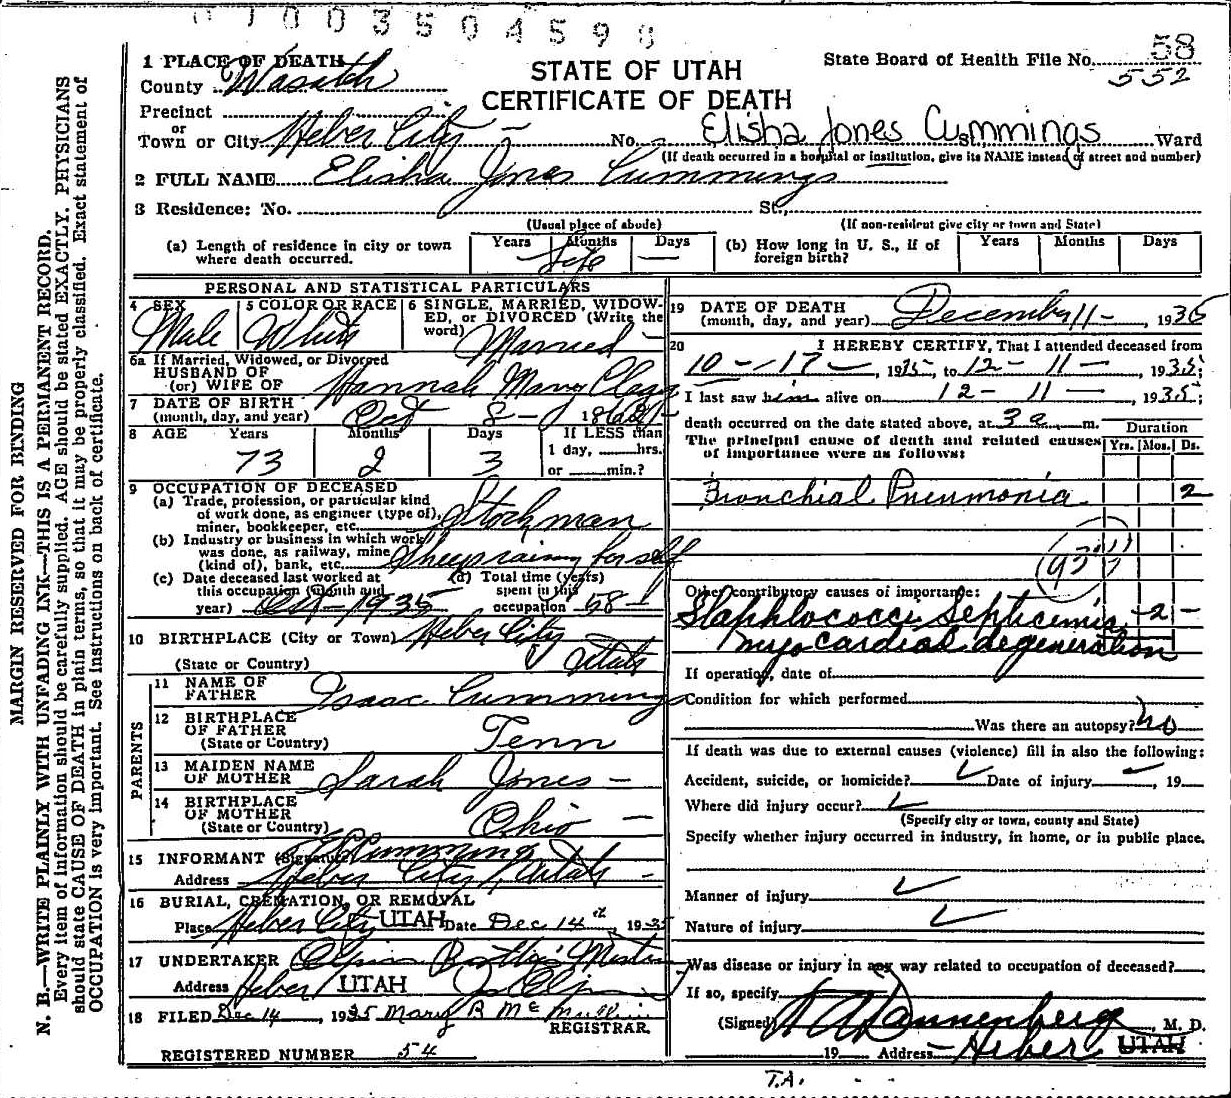 0 1 0 0 3 5 0 4 5 9 8
58
1 PLACE OF DEATH
County Wasatch
STATE OF UTAH
CERTIFICATE OF DEATH
State Board of Health File No. 552
Precinct
or
Town or City Heber City No. Elisha Jones Cummings St., Ward
(If death occurred in a hospital or institution, give its NAME instead of street and number)
2 FULL NAME Elisha Jones Cummings
3 Residence: No. St.,
(Usual place of abode) (If non-resident give city or town and State)
(a) Length of residence in city or town where death occurred. Years Months Days Life —
(b) How long in U. S., if of foreign birth? Years Months Days
PERSONAL AND STATISTICAL PARTICULARS
4 SEX Male
5 COLOR OR RACE White
6 SINGLE, MARRIED, WIDOWED, or DIVORCED (Write the word) Married
6a If Married, Widowed, or Divorced
HUSBAND OF
(or) WIFE OF Hannah Mary Clegg
7 DATE OF BIRTH
(month, day, and year) Oct 8 - 1862
8 AGE Years 73 Months 2 Days 3 If LESS than 1 day, hrs. or min.?
9 OCCUPATION OF DECEASED
(a) Trade, profession, or particular kind of work done, as engineer (type of), miner, bookkeeper, etc. Stockman
(b) Industry or business in which work was done, as railway, mine (kind of), bank, etc. Sheep raising for self
(c) Date deceased last worked at this occupation (month and year) Oct - 1935
(d) Total time (years) spent in this occupation 58
10 BIRTHPLACE (City or Town) Heber City
(State or Country) Utah
PARENTS
11 NAME OF FATHER Isaac Cummings
12 BIRTHPLACE OF FATHER
(State or Country) Tenn
13 MAIDEN NAME OF MOTHER Sarah Jones -
14 BIRTHPLACE OF MOTHER
(State or Country) Ohio -
15 INFORMANT (Signature) Cummings
Address Heber City, Utah -
16 BURIAL, CREMATION, OR REMOVAL
Place Heber City UTAH Date Dec 14th 1935
17 UNDERTAKER
Address Heber UTAH
18 FILED Dec 14, 1935 Mary B McMullin
REGISTRAR.
REGISTERED NUMBER 54
19 DATE OF DEATH
(month, day, and year) December 11 - , 1935
20 I HEREBY CERTIFY, That I attended deceased from
10 - 17 - , 1935, to 12 - 11 - , 1935;
I last saw him alive on 12 - 11 - , 1935;
death occurred on the date stated above, at 3 a m.
The principal cause of death and related causes of importance were as follows:
Duration
Yrs. Mos. Ds.
Bronchial Pneumonia 2
Other contributory causes of importance:
Staphlococci Septicemia - 2 -
myocardial degeneration
If operation, date of
Condition for which performed
Was there an autopsy? no
If death was due to external causes (violence) fill in also the following:
Accident, suicide, or homicide? Date of injury , 19
Where did injury occur?
(Specify city or town, county and State)
Specify whether injury occurred in industry, in home, or in public place.
Manner of injury
Nature of injury
Was disease or injury in any way related to occupation of deceased?
If so, specify
(Signed) Dannenberg, M. D.
19 Address Heber UTAH
T.A.
MARGIN RESERVED FOR BINDING
N. B.—WRITE PLAINLY WITH UNFADING INK—THIS IS A PERMANENT RECORD.
Every item of information should be carefully supplied. AGE should be stated EXACTLY. PHYSICIANS
should state CAUSE OF DEATH in plain terms, so that it may be properly classified. Exact statement of
OCCUPATION is very important. See instructions on back of certificate.